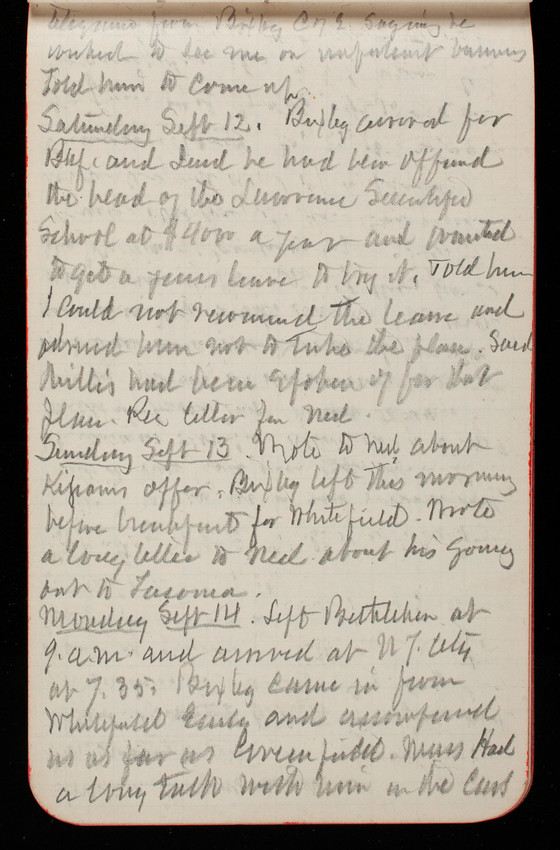 telegram from Bixby C of E. saying he
wished to see me on important business
Told him to come up
Saturday Sept 12. Bixby arrived for
Bkf. and said he had been offered
the head of the Lawrence Scientific
School at $4000 a year and wanted
to get a years leave to try it. Told him
I could not recommend the leave and
advised him not to take the place. Said
Willis had been spoken of for that
place. Rec letter from Ned.
Sunday Sept 13. Wrote to Ned about
offer. Bixby left this morning
before breakfast for Whitefield. Wrote
a long letter to Ned about his going
out to Tacoma.
Monday Sept 14. Left Bethlehem at
9. a.m. and arrived at N.Y. City
at 7.35. Bixby came in from
Whitefield Early and accompanied
us as far as Greenfield. Mass Had
a long talk with him in the Cars